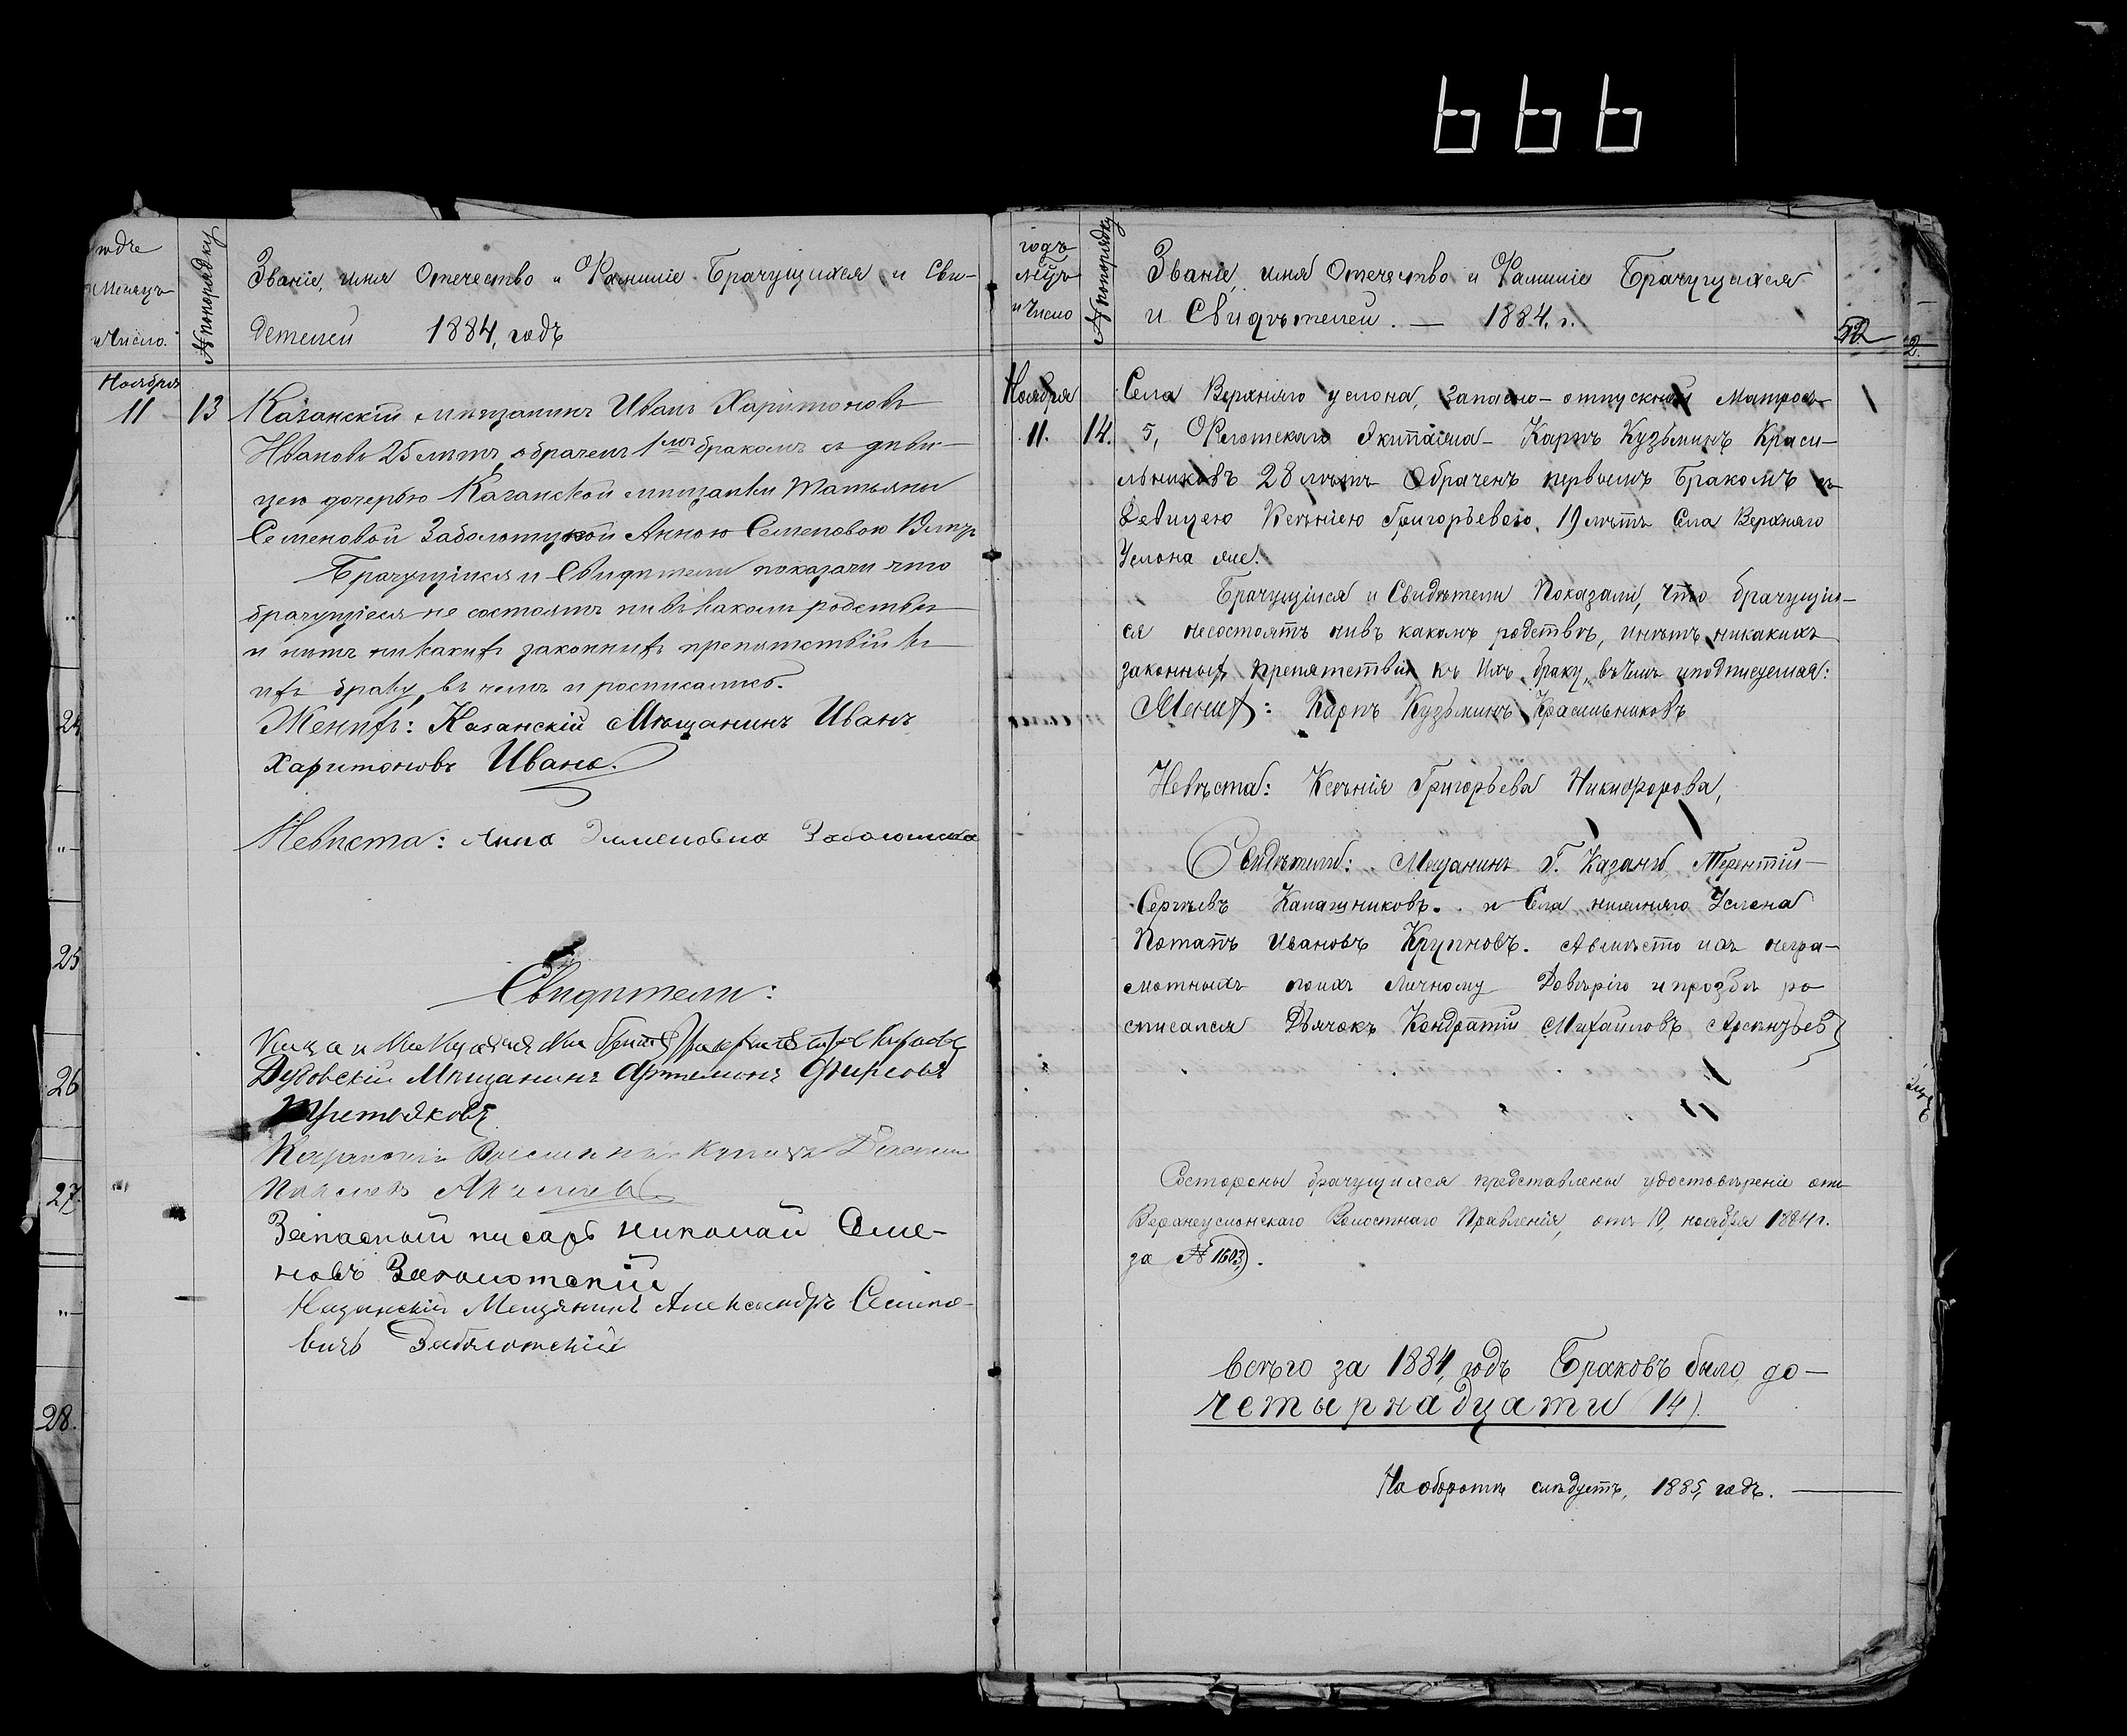 годъ
Месяцъ
и Число.
№ попорядку
Званіе, имя Отечество и Фамиліе Брачущихся и Сви-
детелей 1884, годъ
Ноября
11 13 Казанскій мѣщанинъ Иванъ Харитоновъ
Ивановъ 25 лѣтъ, обраченъ 1мъ бракомъ съ дѣви-
цею дочерью Казанской мѣщанки Татьяны
Семеновой Заболотской Анною Семеновою
Брачущіися и Свидѣтели показали что
брачущіеся не состоятъ ни въ какомъ родствѣ
и нѣтъ никакихъ законныхъ препятствій къ
ихъ браку, въ чемъ и росписались.
Женихъ: Казанскій Мѣщанинъ Иванъ
Харитоновъ Ивано.
Невѣста: Анна Семеновна
Свидѣтели:
Дубовскій Мѣщанинъ Артемонъ Фирсовъ
Третьяковъ
Казанскій купецъ
Запасный писарь Николай Семе-
новъ Заболотскій
Казанскій Мещянинъ Александръ Семено-
вичь Заболотскій
24
25
26
27.
28.
666
годъ
мѣцъ
и Число
№ попорядку
Званіе, имя Отечество и Фамиліе Брачущихся
и Свидѣтелей. — 1884. г.
52
2.
Ноября Села Верхняго услона, запасно-отпускный Матросъ
11. 14. 5, Флотскаго Экипажа - Карпъ Кузьминъ Краси-
льниковъ 28 лѣтъ Обраченъ первымъ Бракомъ съ
Девицею Ксѣніею Григорьевою, 19 лѣтъ Села Верхняго
Услона же.
Брачущіися и Свидѣтели Показали, что брачущіи-
ся несостоятъ нивъ какомъ родствѣ, инѣтъ никакихъ
законныхъ препятствій къ Ихъ браку, въ чемъ иподписуемся:
Женихъ: Карпъ Кузьминъ Красильниковъ
Невѣста: Ксѣнія Григорьева Никифорова,
Свидѣтели: Мещанинъ Г. Казани Терентій
Сергѣевъ Калашниковъ. и Села нижняго Услона
Потапъ Ивановъ Крупновъ. Авмѣсто ихъ негра-
мотныхъ поихъ Личному Довѣрію и прозбѣ ро
списался Дьячокъ Кондратій Михайловъ Арсѣнтьевъ
Состороны брачущихся представлены удостовѣреніе отъ
Верхнеуслонскаго Волостнаго Правленія, отъ 10, ноября 1884 г.
за № 1603.
всѣго за 1884, годъ Браковъ было, до-
четырнадцати (14).
На оборотѣ слѣдуетъ, 1885, годъ.